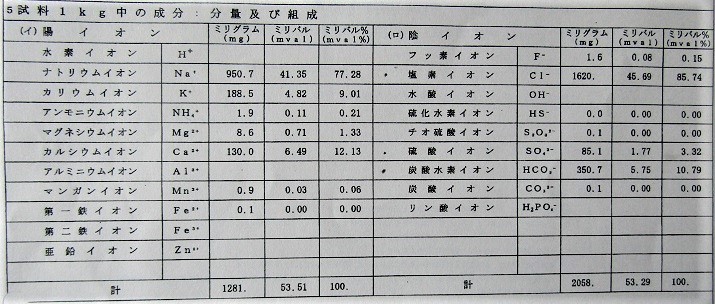 5 試料1kg中の成分:分量及び組成
(イ) 陽イオン ミリグラム (mg) ミリバル (mval) ミリバル% (mval%) (ロ) 陰イオン ミリグラム (mg) ミリバル (mval) ミリバル% (mval%)
水素イオン H⁺ フッ素イオン F⁻ 1.6 0.08 0.15
ナトリウムイオン Na⁺ 950.7 41.35 77.28 塩素イオン Cl⁻ 1620. 45.69 85.74
カリウムイオン K⁺ 188.5 4.82 9.01 水酸イオン OH⁻
アンモニウムイオン NH₄⁺ 1.9 0.11 0.21 硫化水素イオン HS⁻ 0.0 0.00 0.00
マグネシウムイオン Mg²⁺ 8.6 0.71 1.33 チオ硫酸イオン S₂O₃²⁻ 0.1 0.00 0.00
カルシウムイオン Ca²⁺ 130.0 6.49 12.13 硫酸イオン SO₄²⁻ 85.1 1.77 3.32
アルミニウムイオン Al³⁺ 炭酸水素イオン HCO₃⁻ 350.7 5.75 10.79
マンガンイオン Mn²⁺ 0.9 0.03 0.06 炭酸イオン CO₃²⁻ 0.1 0.00 0.00
第一鉄イオン Fe²⁺ 0.1 0.00 0.00 リン酸イオン H₂PO₄⁻
第二鉄イオン Fe³⁺
亜鉛イオン Zn²⁺
計 1281. 53.51 100. 計 2058. 53.29 100.